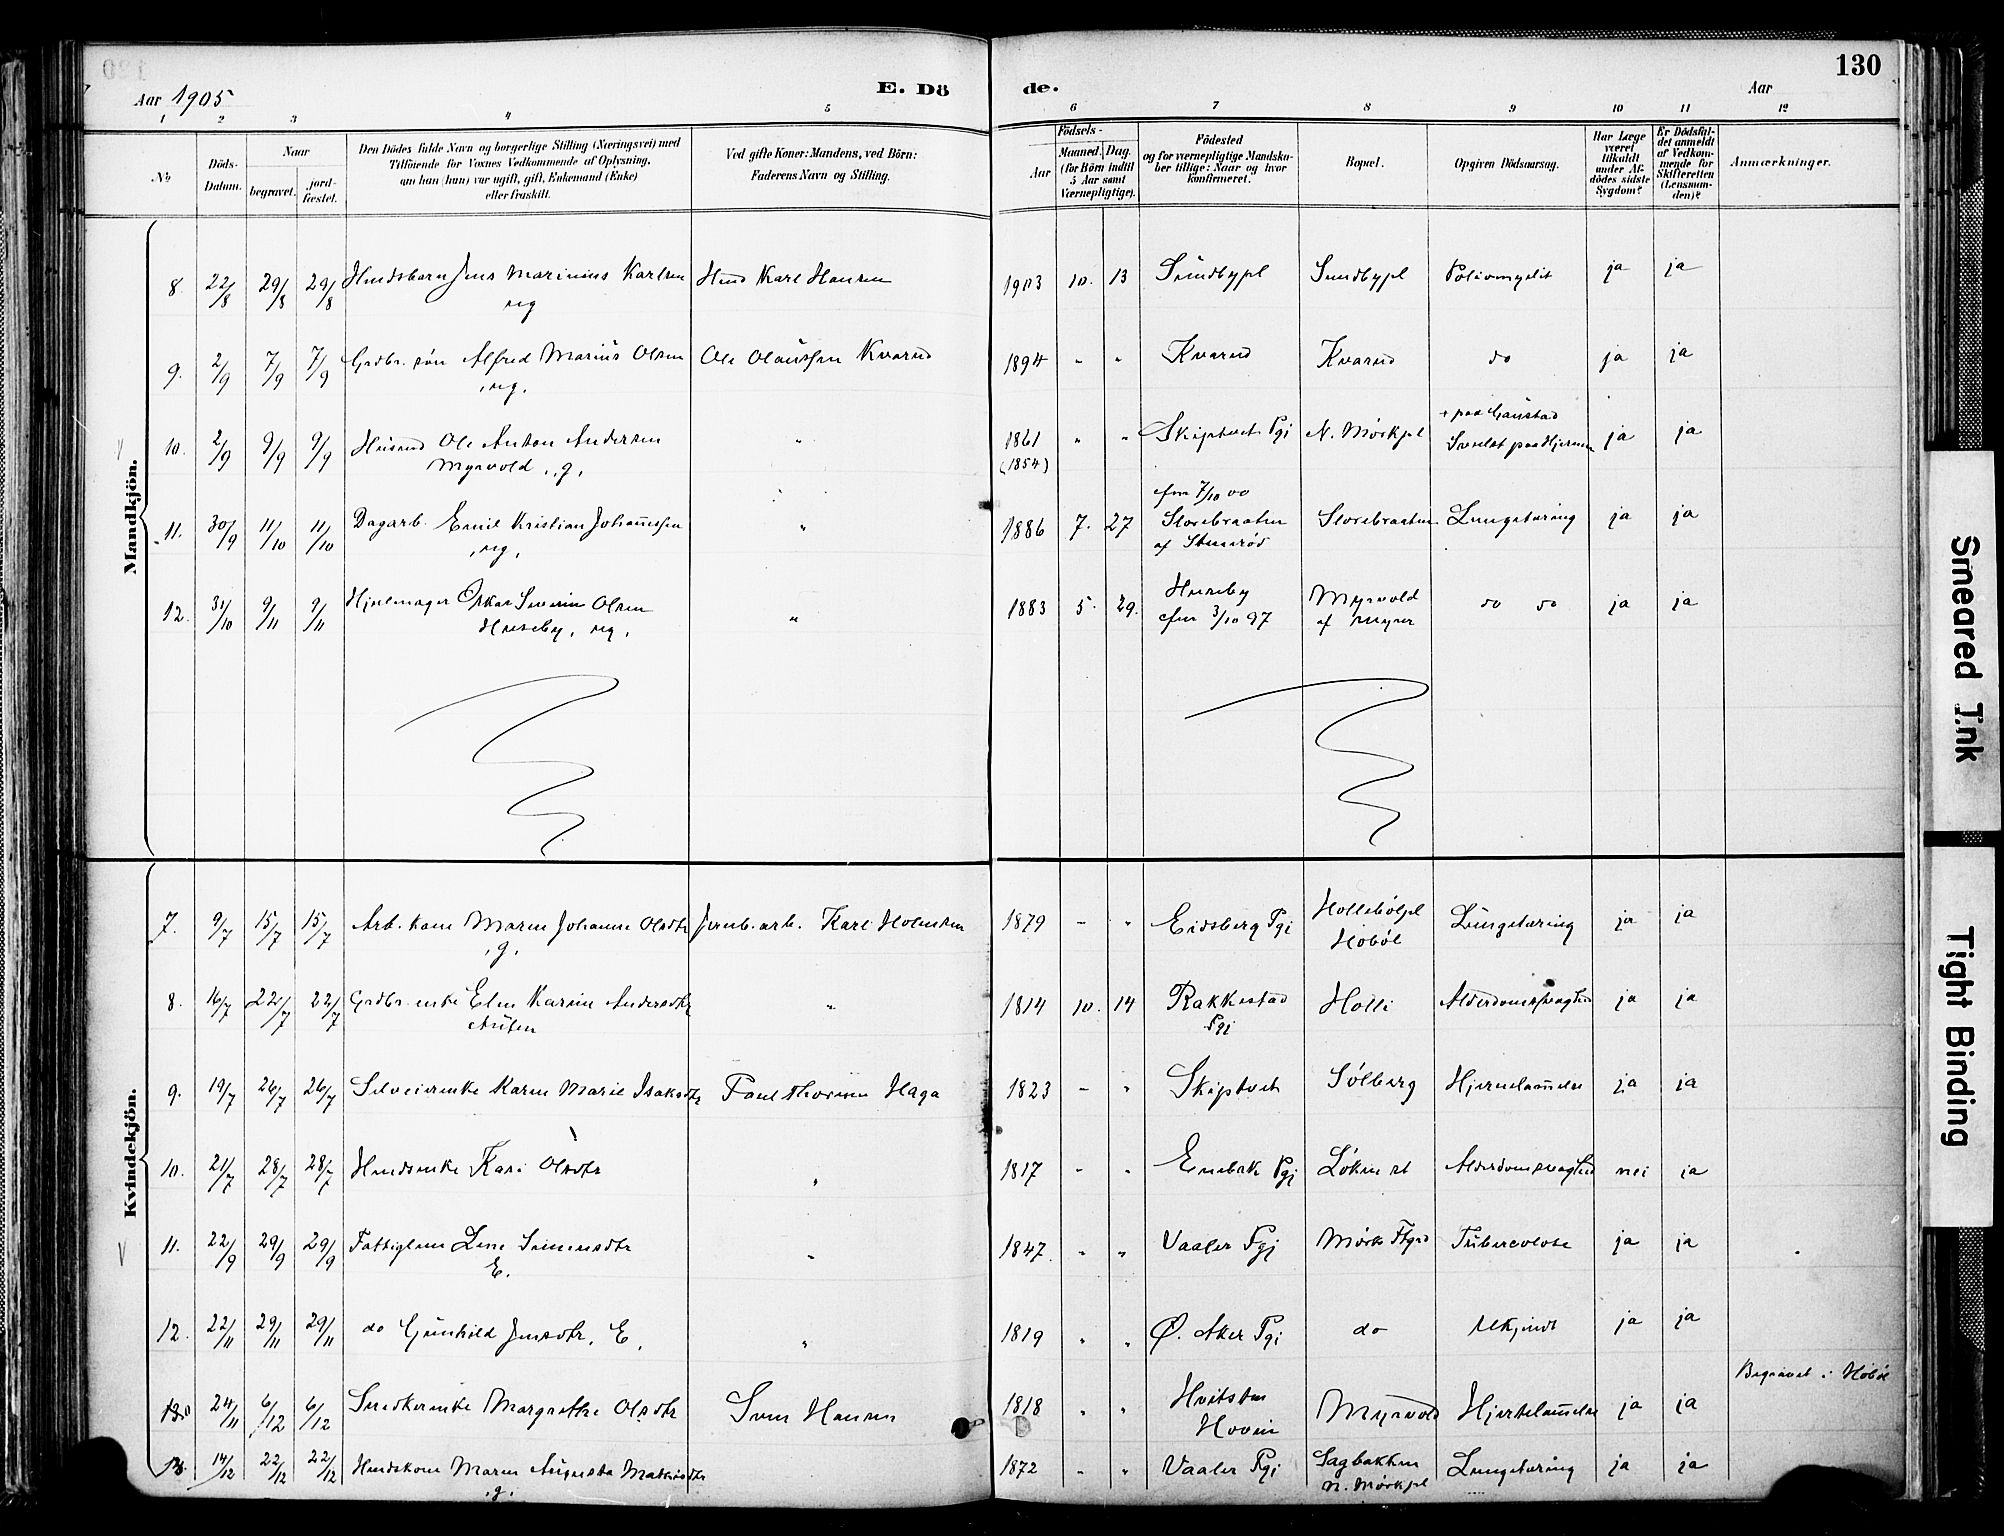 130
Aar 1905
E. Dö
de.
Aar
1 2 3 4 5
6 7 8 9 10 11 12
No
Döds-Datum.
Naar
begravet.
jord-fæstet.
Den Dödes fulde Navn og borgerlige Stilling (Næringsvei) med
Tilföiende for Voxnes Vedkommende af Oplysning,
om han (hun) var ugift, gift, Enkemand (Enke)
eller fraskilt.
Ved gifte Koner: Mandens, ved Börn:
Faderens Navn og Stilling.
Födsels-
Aar
Maaned. Dag.
(for Börn indtil
5 Aar samt
Værnepligtige).
Födested
og for værnepligtige Mandska-
ber tillige: Naar og hvor
konfirmeret.
Bopæl.
Opgiven Dödsaarsag.
Har Læge
været
tilkaldt
under Af-
dödes sidste
Sygdom?
Er Dödsfal-
det anmeldt
af Vedkom-
mende for
Skifteretten
(Lensman-
den)?
Anmærkninger.
Mandkjön.
8. 22/8 29/8 29/8 Jens Marinius Karlsen Karl Hansen 1903 10. 13 Sundbypl Sundbypl Poliomyelit ja ja
ug
9. 2/9 7/9 7/9 Grdbr. søn Alfred Marius Olsen Ole Olaussen Kvarud 1894 " " Kvarud Kvarud do ja ja
ug.
+ paa Gaustad
10. 2/9 9/9 9/9 Ole Anton Andersen " 1861 " " Skiptvet Pgj N. Mørkpl ja ja
Myrvold, g. (1854)
cfm 7/10 00
11. 30/9 11/10 11/10 Dagarb. Emil Kristian Johannesen " 1886 7. 27 Storebraaten Storebraaten Lungetæring ja ja
ug.
12. 31/10 9/11 9/11 Hjulmager Oskar Severin Olsen " 1883 5. 29. Huseby Myrvold do do ja ja
Huseby, ug. cfm 3/10 97 af Myrer
Kvindekjön.
7. 9/7 15/7 15/7 Arb. kone Maren Johanne Olsdtr Jernb. arb. Karl Holmsen 1879 " " Eidsberg Pgj Hollebölpl Lungetæring ja ja
g. Hobøl
8. 16/7 22/7 22/7 Grdbr. enke Elen Karine Andersdtr " 1814 10. 14 Rakkestad Holli Alderdomssvaghed ja ja
Pgj
9. 19/7 26/7 26/7 Selveierenke Karen Marie Isaksdtr Paul Thorsen Haga 1823 " " Skiptvet Sølberg Hjernelammelse ja ja
10. 21/7 28/7 28/7 Kari Olsdtr " 1817 " " Enebak Pgj Løken st Alderdomssvaghed nei ja
11. 22/9 29/9 29/9 Fattiglem Lene Simensdtr " 1847 " " Vaaler Pgj Mørk Ftgrd Tuberculose ja ja
E.
12. 22/11 29/11 29/11 do Gunhild Jensdtr. E. " 1819 " " Ø. Aker Pgj do Ukjendt ja ja
Begravet i Hobøl
13. 24/11 6/12 6/12 Snedkerenke Margrethe Olsdtr Sven Hansen 1818 " " Hvitsten Myrvold Hjertelammelse ja ja
Hovin
14/12 22/12 22/12 Maren Augusta 1872 " " Vaaler Pgj Sagbakken Lungetæring ja ja
g. N. Mørkpl
Smeared Ink
Tight Binding